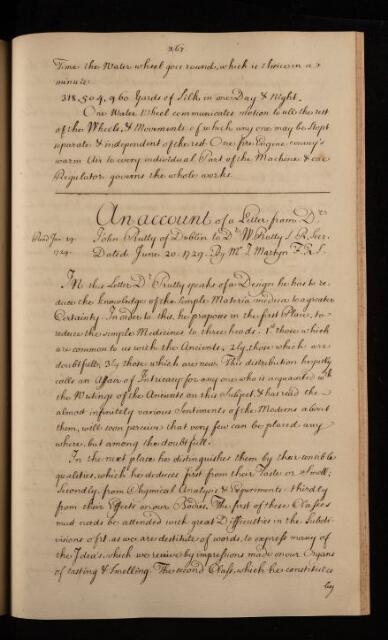 261
Time the Water wheel goes round, which is thrice in a
minute
318,504,960 Yards of Silk in one Day & Night.
One Water Wheel communicates motion to all the rest
of the Wheels, & Movements of which any one may be stopt
separate & independent of the rest One fire Engine conveys
warm Air to every individual Part of the Machine & one
Regulator governs the whole works.
An account of a Letter from Dr
Read Jan. 29. John Rutty of Dublin to Dr W Rutty S. R. Secr.
1729. Dated June 20. 1729. By Mr J. Martyn F.R.S.
IN this Letter Dr Rutty speaks of a Design he has to re-
duce the knowledge of the simple Materia medica to a greater
Certainty. In order to this, he proposes in the first Place, to
reduce the simple Medicines to three heads. 1st those which
are common to us with the Ancients, 2ly those which are
doubtfull, 3ly those which are new. This distribution he justly
calls an Affair of Intricacy for any one who is acquainted wth
the Writings of the Ancients on this Subject, & has read the
almost infinitely various Sentiments of the Moderns about
them, will soon perceive that very few can be placed any
where, but among the doubtfull.
In the next place he distinguishes them by their sensible
qualities, which he deduces first from their Taste or Smell;
Secondly, from Chymical Analysis & Experiments thirdly
from their Effects on our Bodies. The first of these Classes
must needs be attended with great Difficulties in the Subdi-
visions of it. as we are destitute of words, to express many of
the Idea's which we receive by impressions made on our Organs
of tasting & Smelling. The second Class, which he constitutes
by